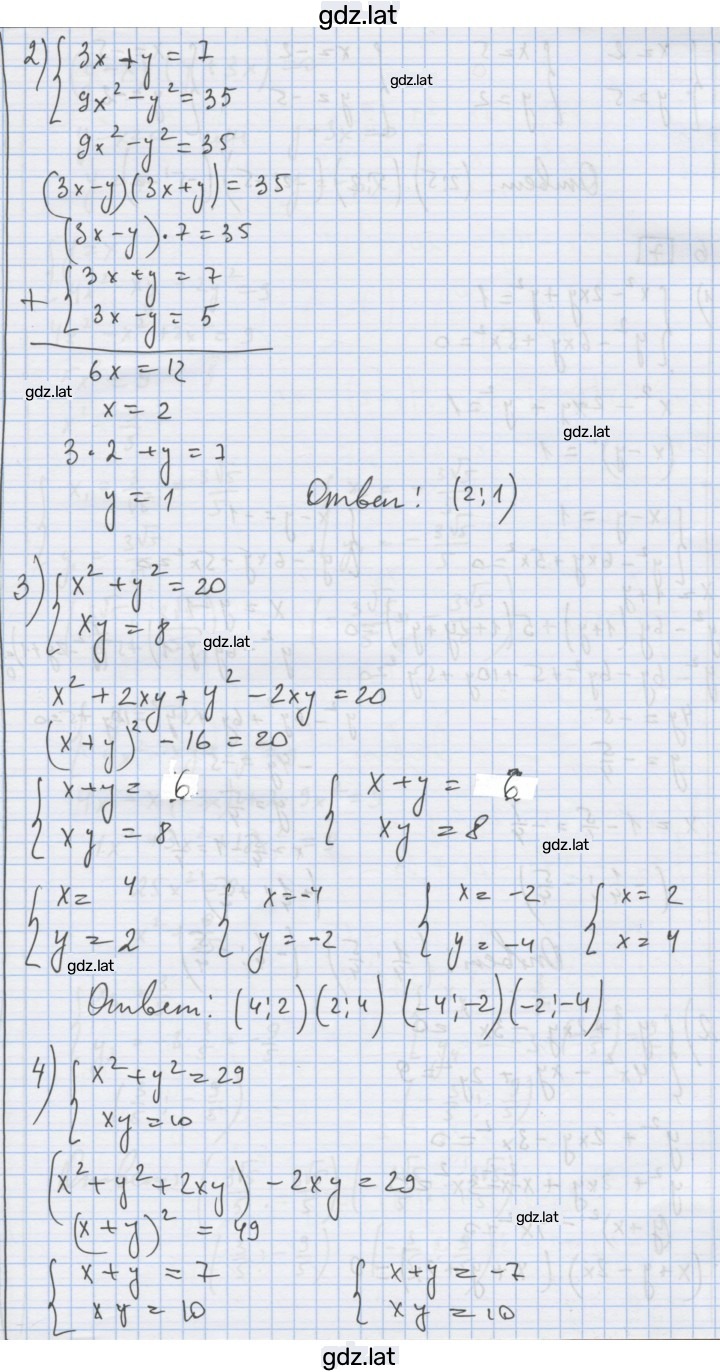 gdz.lat
2) { 3x + y = 7
9x² - y² = 35
gdz.lat
9x² - y² = 35
(3x - y)(3x + y) = 35
(3x - y) · 7 = 35
+ { 3x + y = 7
3x - y = 5
6x = 12
gdz.lat
x = 2
gdz.lat
3 · 2 + y = 7
y = 1 Ответ: (2; 1)
3) { x² + y² = 20
xy = 8
gdz.lat
x² + 2xy + y² - 2xy = 20
(x + y)² - 16 = 20
{ x + y = 6 { x + y = 6
xy = 8 xy = 8
gdz.lat
{ x = 4 { x = -4 { x = -2 { x = 2
y = 2 y = -2 y = -4 x = 4
gdz.lat
Ответ: (4; 2) (2; 4) (-4; -2) (-2; -4)
4) { x² + y² = 29
xy = 10
(x² + y² + 2xy) - 2xy = 29
(x + y)² = 49
gdz.lat
{ x + y = 7 { x + y = -7
xy = 10 xy = 10
gdz.lat